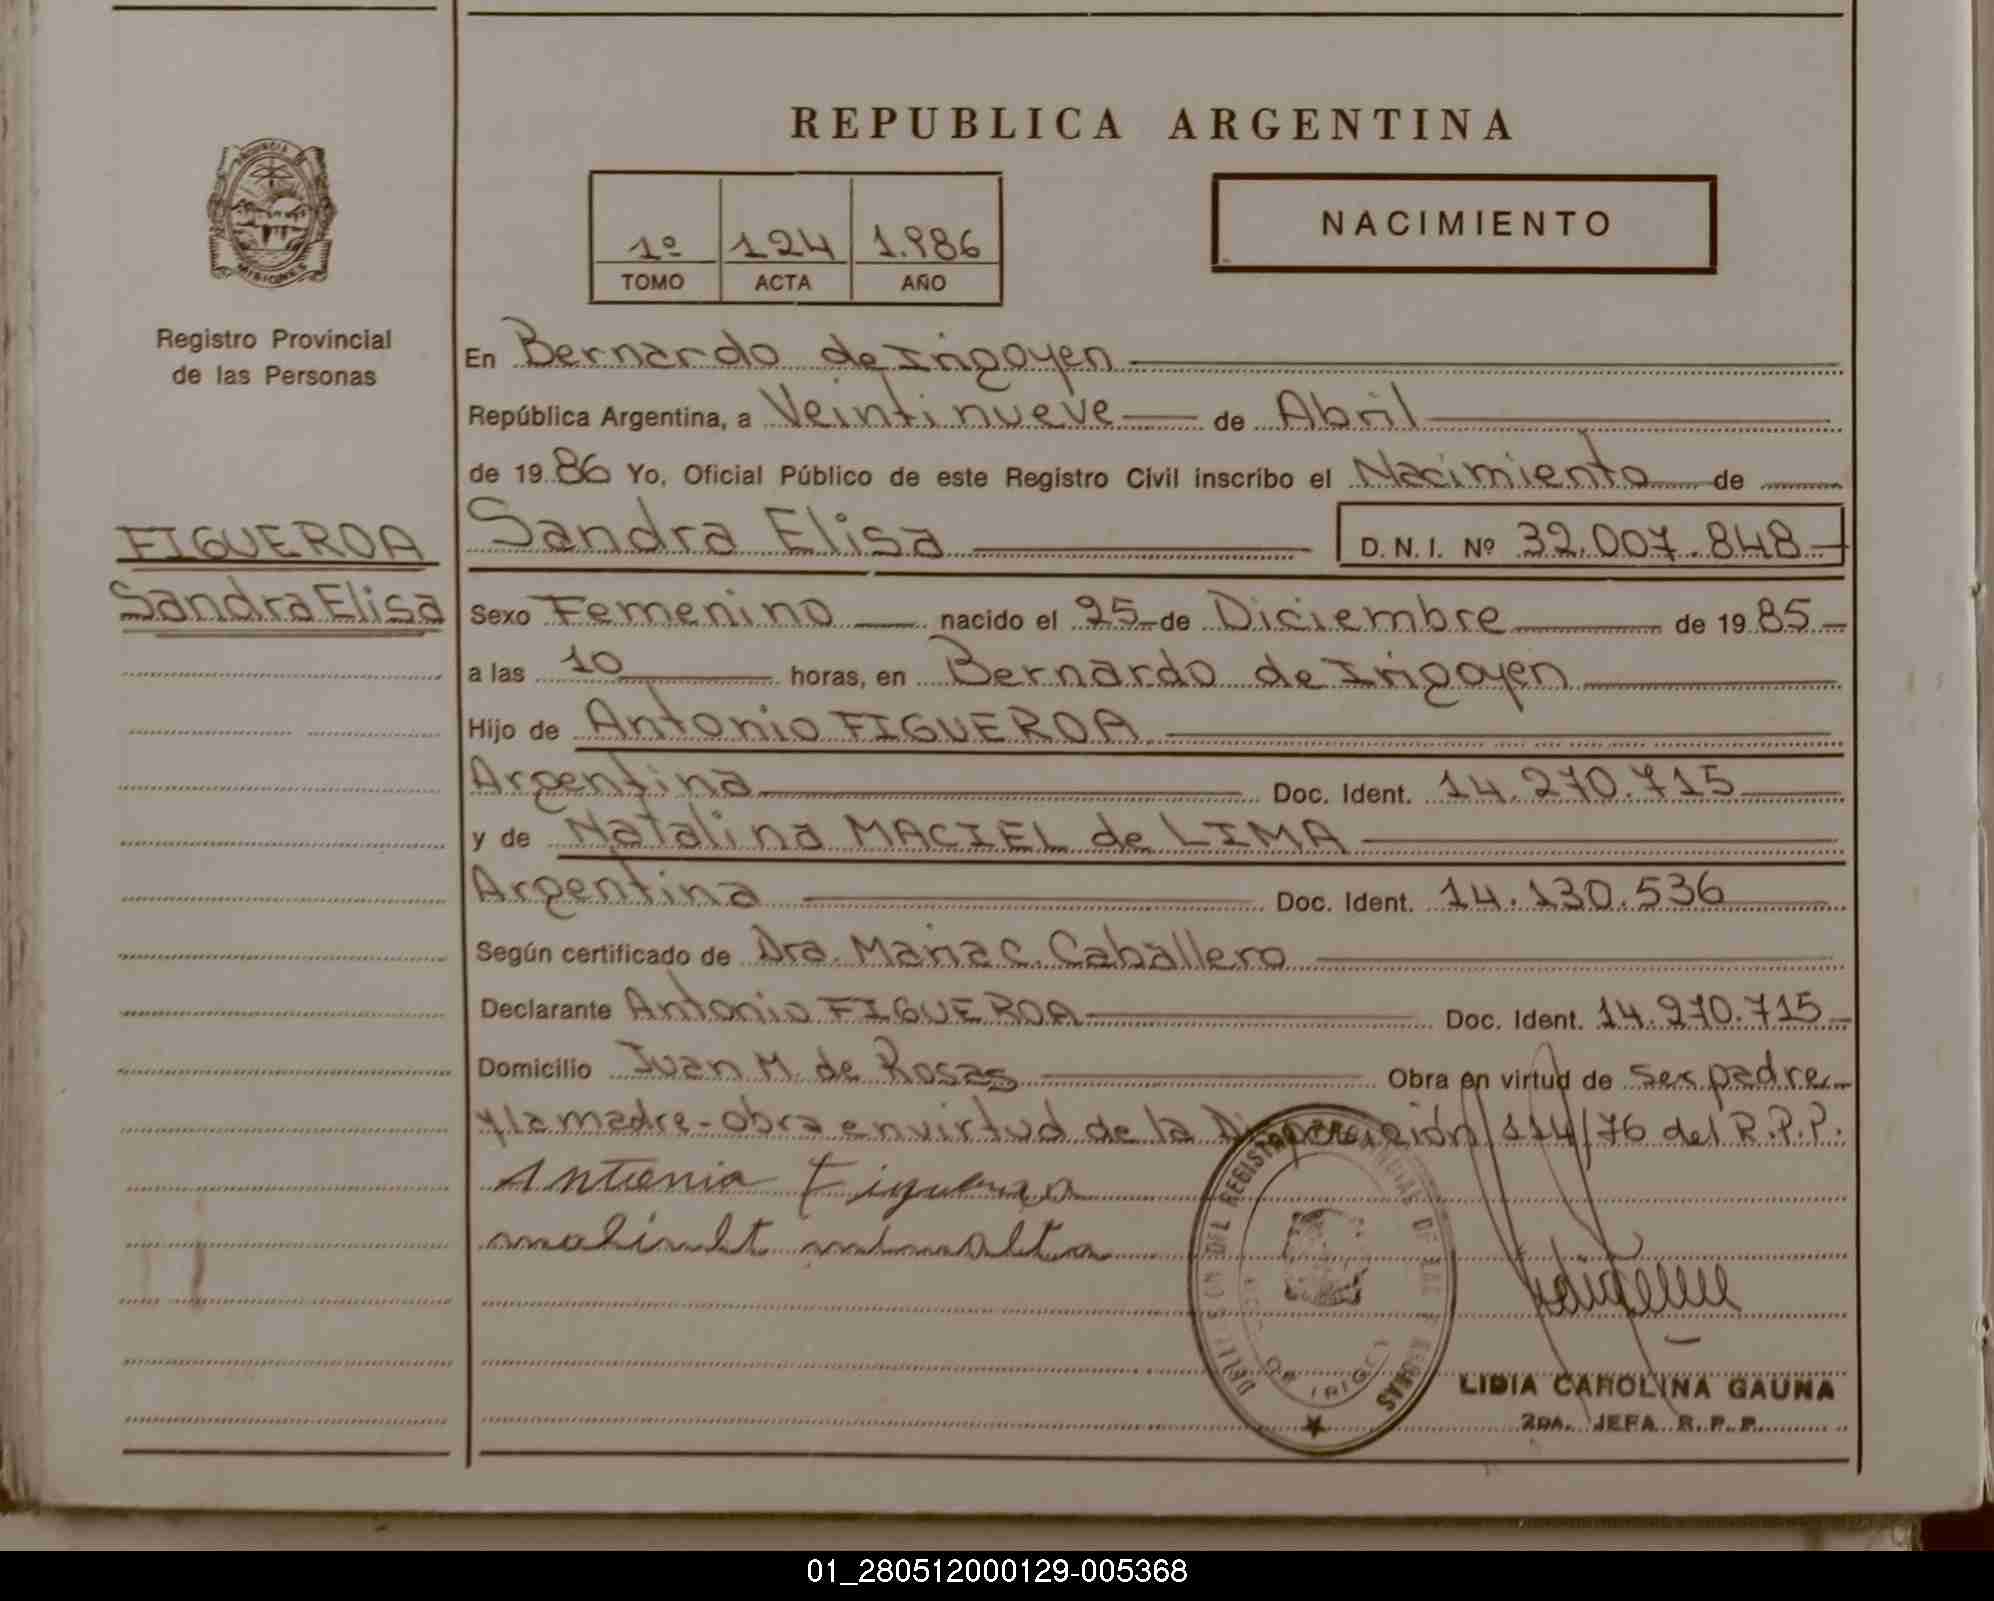 REPUBLICA ARGENTINA
PROVINCIA DE
MISIONES
Registro Provincial
de las Personas
1º 124 1.986
TOMO ACTA AÑO
NACIMIENTO
En Bernardo de Irigoyen
República Argentina, a Veintinueve de Abril
de 19 86 Yo, Oficial Público de este Registro Civil inscribo el Nacimiento de
FIGUEROA
Sandra Elisa
Sandra Elisa D. N. I. Nº 32.007.848
Sexo Femenino nacido el 25 de Diciembre de 19 85
a las 10 horas, en Bernardo de Irigoyen
Hijo de Antonio FIGUEROA
Argentina Doc. Ident. 14.270.715
y de Natalina MACIEL de LIMA
Argentina Doc. Ident. 14.130.536
Según certificado de Dra. Maria C. Caballero
Declarante Antonio FIGUEROA Doc. Ident. 14.270.715
Domicilio Juan M. de Rosas Obra en virtud de ser padre
y la madre-obra en virtud de la Disposición 114/76 del R.P.P.
Antonio Figueroa
DEL REGISTRO DE LAS
LIDIA CAROLINA GAUNA
2DA. JEFA R. P. P.
01_280512000129-005368